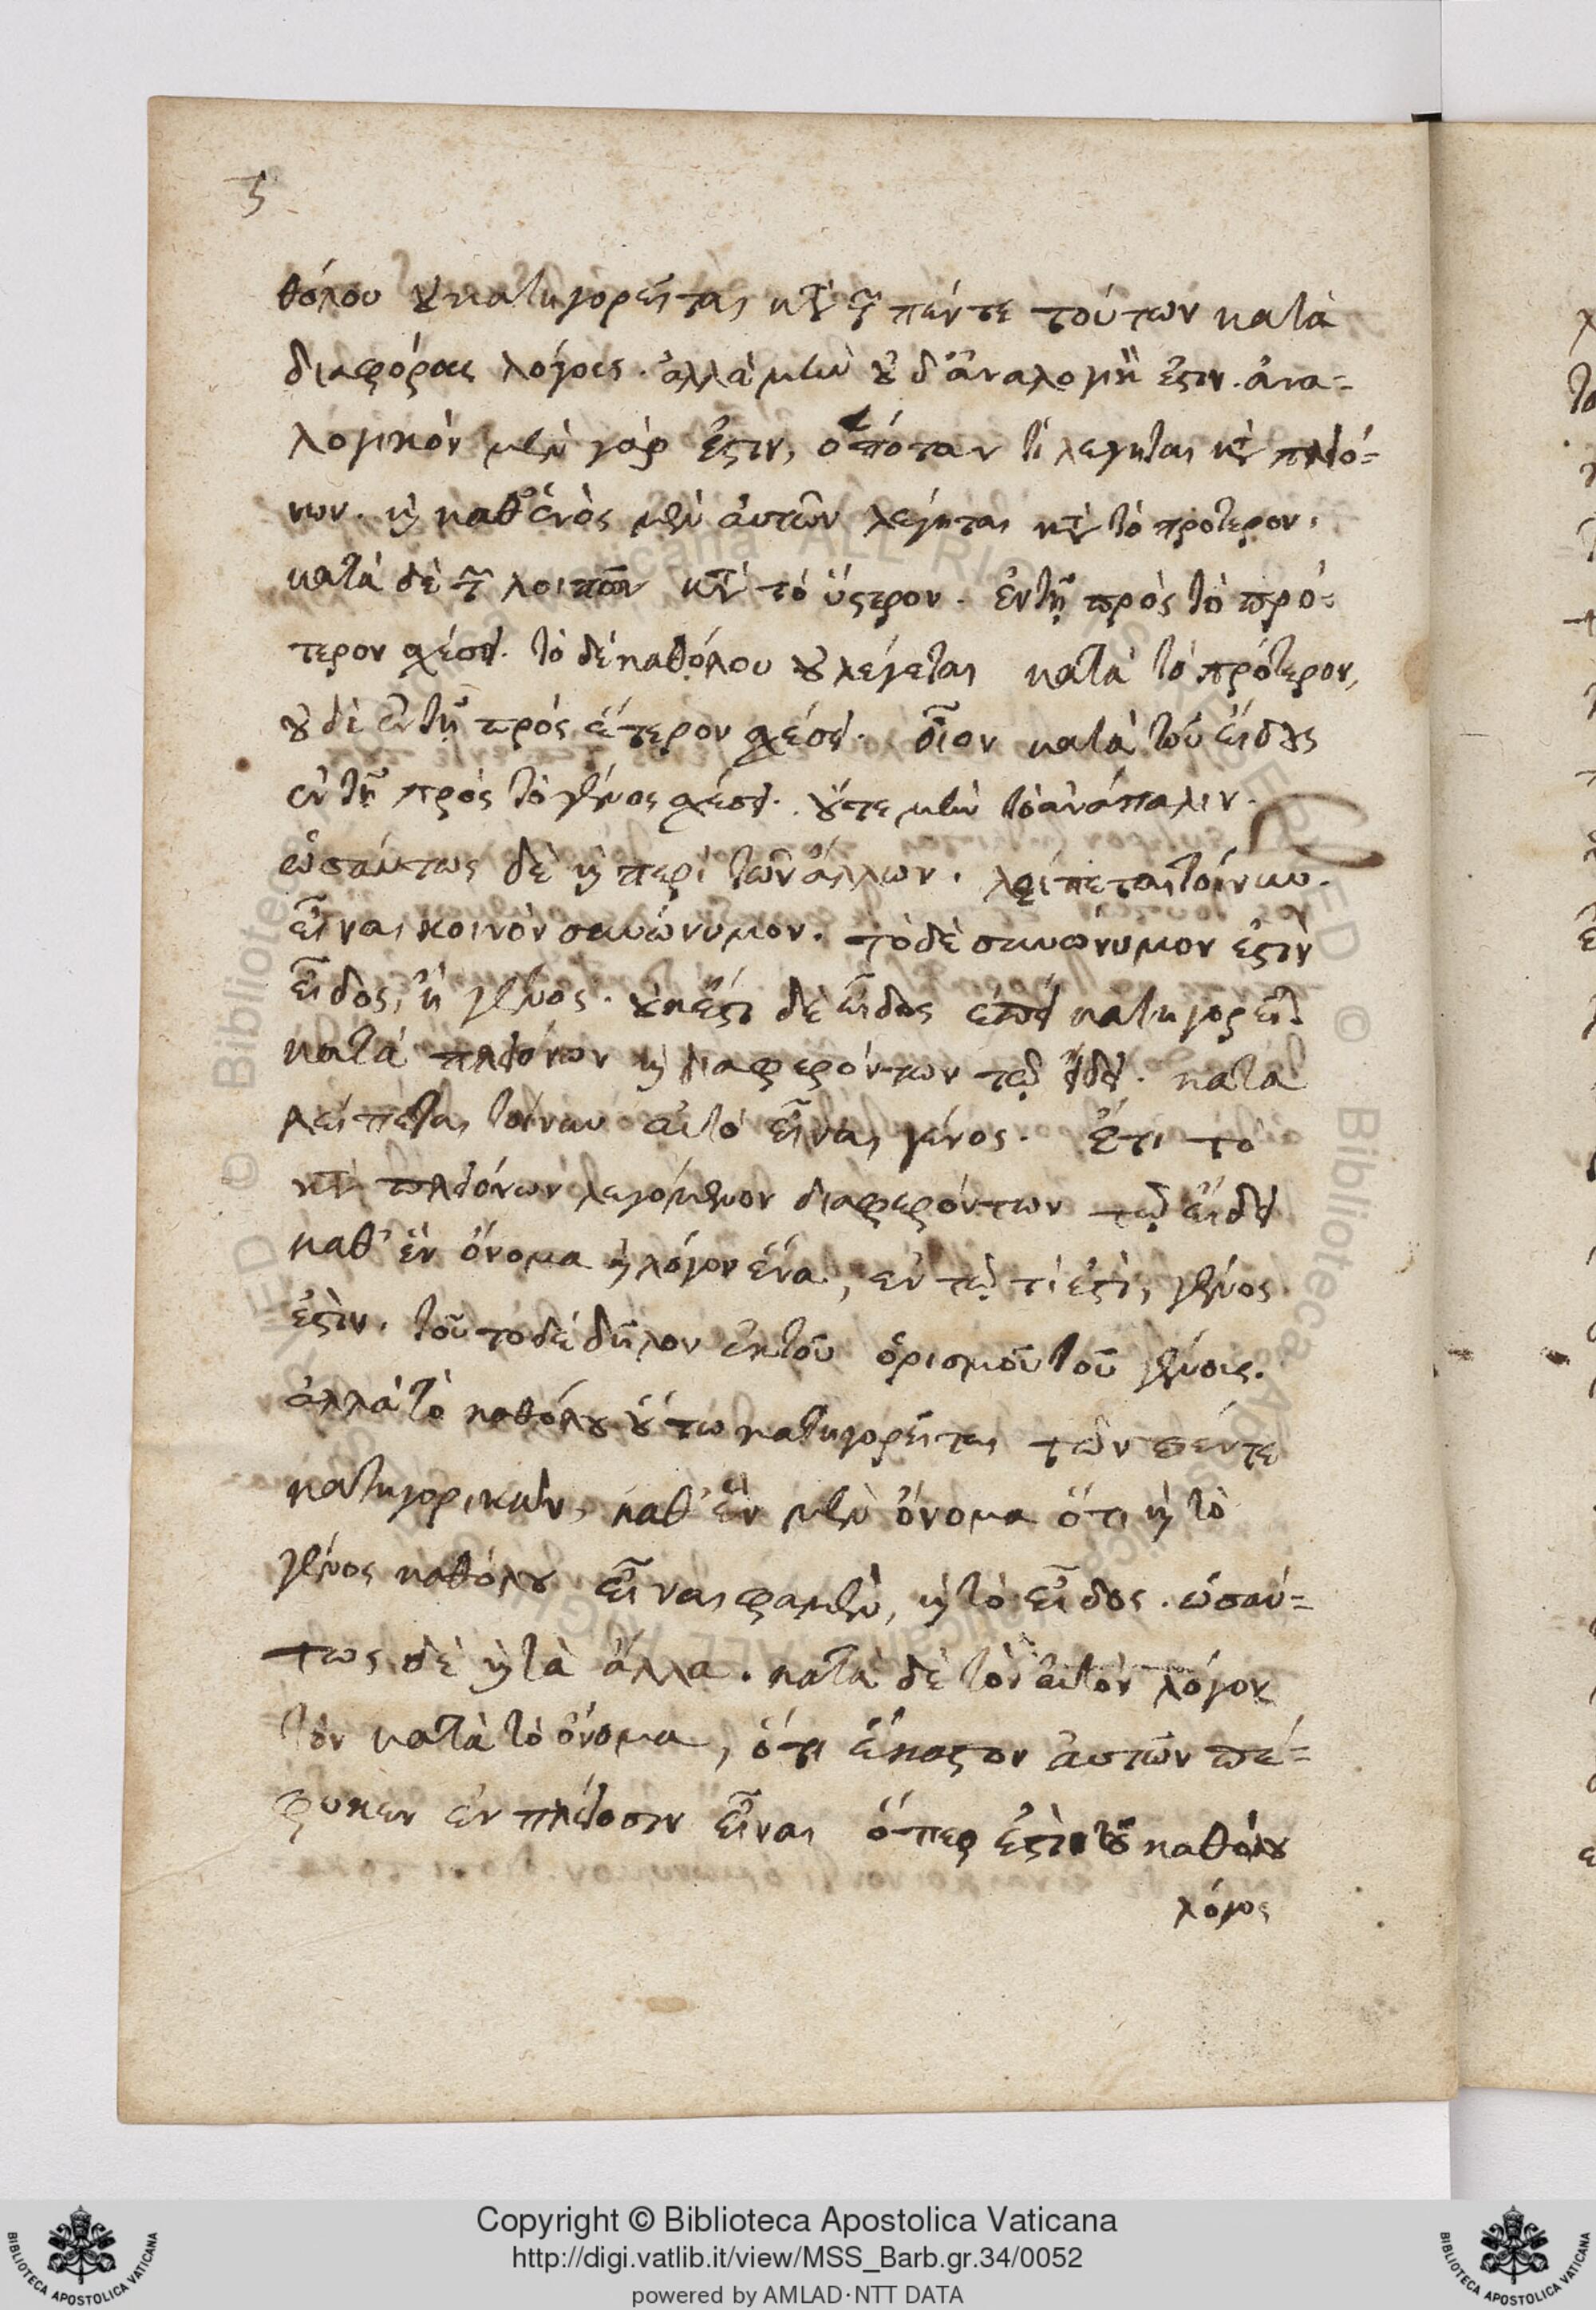 ς
θόλου οὐ κατηγορεῖται κατὰ τῶν πέντε τούτων κατὰ
διαφόρους λόγους. ἀλλὰ μὴν οὐδ' ἀναλογικόν ἐστιν. ἀνα=
λογικὸν μὲν γάρ ἐστιν, ὁπόταν τὶ λέγηται κατὰ πλειό=
νων. καὶ καθ' ἑνὸς μὲν αὐτῶν λέγηται κατὰ τὸ πρότερον.
κατὰ δὲ τῶν λοιπῶν κατὰ τὸ ὕστερον. ἐν τῇ πρὸς τὸ πρό=
τερον σχέσει. τὸ δὲ καθόλου οὐ λέγεται κατὰ τὸ πρότερον,
οὐδὲ ἐν τῇ πρὸς ἕτερον σχέσει. οἷον κατὰ τοῦ εἴδους
ἐν τῇ πρὸς τὸ γένος σχέσει. οὔτε μὴν τὸ ἀνάπαλιν.
ὡσαύτως δὲ καὶ περὶ τῶν ἄλλων. λείπεται τοίνυν
εἶναι κοινὸν συνώνυμον. τὸ δὲ συνώνυμον ἐστὶν
εἶδος, ἢ γένος. οὐκ ἔστι δὲ εἶδος ἐπεὶ κατηγορεῖται
κατὰ πλειόνων καὶ διαφερόντων τῷ εἴδει. κατα
λείπεται τοίνυν αὐτὸ εἶναι γένος. Ἔτι τὸ
κατὰ πλειόνων λεγόμενον διαφερόντων τῷ εἴδει
καθ' ἓν ὄνομα καὶ λόγον ἕνα, ἐν τῷ τί ἐστὶ, γένος
ἐστὶν. τοῦτο δὲ δῆλον ἐκ τοῦ ὁρισμοῦ τοῦ γένους.
ἀλλὰ τὸ καθόλου οὕτω κατηγορεῖται τῶν πέντε
κατηγορικῶν, καθ' ἓν μὲν ὄνομα ὅτι καὶ τὸ
γένος καθόλου εἶναι φαμὲν, καὶ τὸ εἶδος. ὡσαύ=
τως δὲ καὶ τὰ ἄλλα. κατὰ δὲ τὸν αὐτὸν λόγον
τὸν κατὰ τὸ ὄνομα, ὅτι ἕκαστον αὐτῶν πέ=
φυκεν ἐν πλείοσιν εἶναι ὅπερ ἐστὶ τοῦ καθόλου
λόγος
Copyright © Biblioteca Apostolica Vaticana
http://digi.vatlib.it/view/MSS_Barb.gr.34/0052
powered by AMLAD·NTT DATA